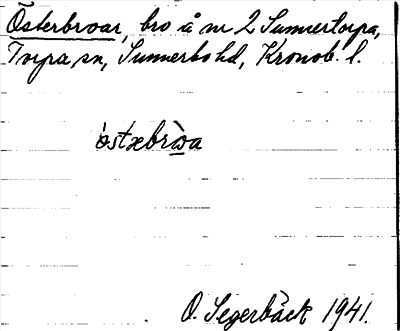 Österbroar, bro å nr 2 Sunnertorpa,
Torpa sn, Sunnerbo hd, Kronob. l.
östxbrωa
O. Segerbäck 1941.